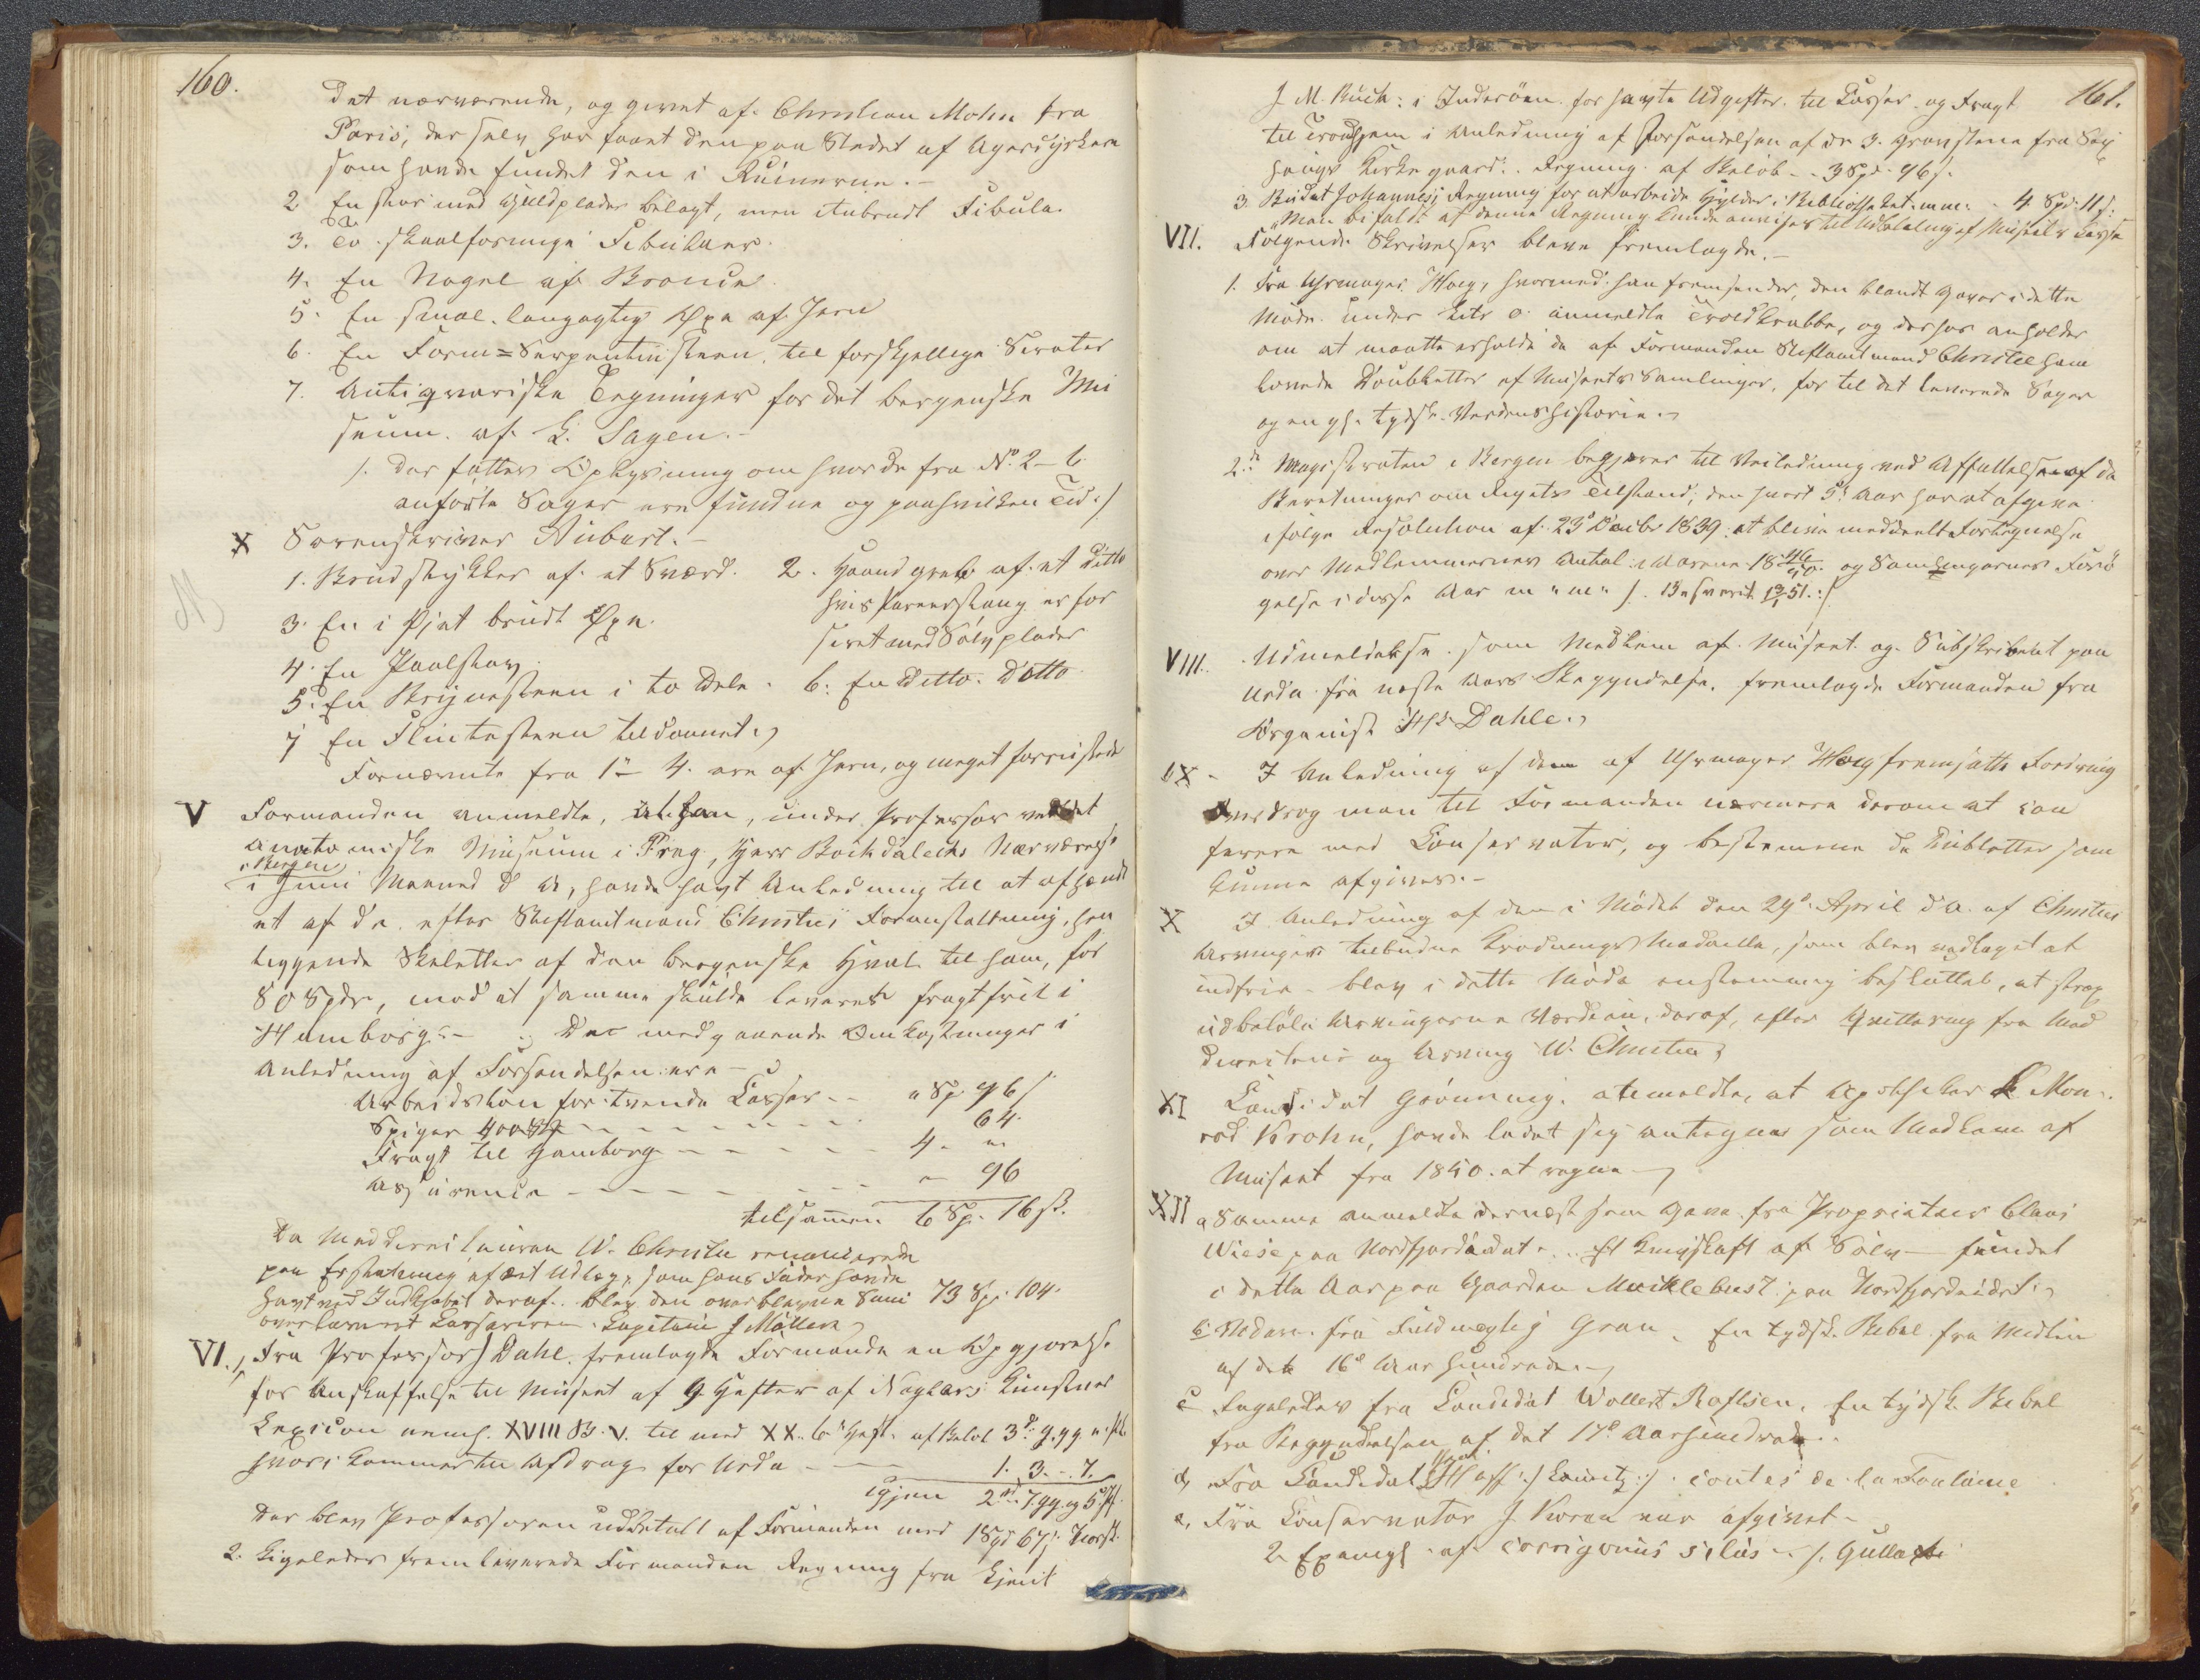 160.
Det nærværende, og givet af Christian Mohn fra
Paris, der selv har faaet den paa Stedet af Agerdyrkere
som havde fundet den i Ruinerne.-
2 En stor med Guldplader belagt, men itubrudt Fibula.
3. To skaalformige Fibulaer.
4. En Nagel af Bronce.
5. En smal langagtig Øxe af Jern
6. En Form=Serpentinsteen, til forskjellige Sirater
7. Antiqvariske Tegninger for det bergenske Mu
seum af L. Sagen.-
/: der fattes Oplysning om hvor de fra No. 2-6
anførte Sager ere fundne og paa hvilken Tid :/
X Sorenskriver Aubert.-
1. Brudstykker af et Sværd. 2. Haandgreb af et ditto
hvis Parerstang er for
siret med Sølvplader
3. En i Øjet brudt Øxe.
4. En Paalstav.
5. En Brynesteen i to Dele. 6. En Ditto. Ditto
7 En Flintesteen tildannet.
Fornævnte fra 1-4. ere af Jern, og meget forrustede
V Formanden anmeldte, at han, under Professor ved det
anatomiske Museum i Prag, Herr Bochdaleks Nærværelse
i Bergen
i Juni Maaned d. A, havde havt Anledning til at afhænde
et af de efter Stiftamtmand Christies Foranstaltning, hen
liggende Skeletter af den bergenske Hval til ham, for
80 Spdr, mod at samme skulde leveres fragtfrit i
Hamborg.- Det medgaaende Omkostninger i
Anledning af Forsendelsen ere-
Arbeidsløn for tvende Kasser - - " Sp. 96 s
Spiger 400 - - - - - - 64.
Fragt til Hamborg - - - - - 4. - "
Assurence - - - - - - - 96
tilsammen 6 Sp. 16 s.
Da Madderni W. Christie renoncerede
paa Erstatning af det Udlæg, som hans Fader havde
havt ved Indkjøbet deraf.. blev den overblevne Sum 73 Sp. 104.
overleveret Kassereren. Capitain J Møller
VI. 1, Fra Professor J Dahl. fremlagde Formanden en Opgjørelse
for Anskaffelse til Museet af 9 Hefter af Naglers Künstner
Lexicon nemlig XVIII B. V. til med XX. 6 Heft. af Beløb 3
hvori kommer til Afdrag for Urda - - 1. 3. - 7.
igjen 2
Der blev Professoren udbetalt af Formanden med 1 Spd 67 s. Norsk.
2. Ligeledes fremleverede Formanden Regning fra Lieut
161.
J. M. Buch: i Inderøen for havte Udgifter til Kasser og Fragt
til Trondhjem i Anledning af Forsendelsen af de 3. Gravstene fra Sax
haugs Kirkegaard. Regning af Beløb - - 3 Spd. 96 s.
3. Budet Johannes; Regning for at arbeide Hylder i Bibliotheket m. m. - 4 Spd. 11 s:
Man bifaldt at denne Regning kunde anvises til Udbetaling af Museets Kasse
VII. Følgende Skrivelser bleve fremlagde.-
1. Fra Uhrmager Høeg, hvormed han fremsender, den blandt Gaver i dette
Møde under Litr e. anmeldte Troldkrabbe, og derhos anholder
om at maatte erholde de af Formanden Stiftamtmand Christie ham
lovede Doubletter af Museets Samlinger, for til det leverede Sager
og en gl. tydsk Verdenshistorie.-
2. Magistraten i Bergen begjærer til Veiledning ved Affattelsen af de
Beretninger om Rigets Tilstand, den hvert 5te Aar har at afgive
ifølge Resolution af 23de Decbr 1839. at blive meddeelt Fortegnelse
over Medlemmernes Antal i Aarene 1846/50. og Samlingernes Forø
gelse i disse Aar m " m " /: Besvaret :/
VIII. Udmeldelse som Medlem af Museet og Subskribent paa
Urda fra næste Aars Begyndelse, fremlagde Formanden fra
Organist Dahle.
IX - I Anledning af den af Uhrmager Høeg fremsatte Fordring
overdrog man til Formanden nærmere derom at con
ferere med Conservator, og bestemme de Dubletter som
kunne afgives.-
X I Anledning af den i Mødet den 29de April d. A. af Christies
Arvinger tilbudne Kronings Medaille, som blev vedtaget at
indfrie - blev i dette Møde enstemmig besluttet, at strax
udbetale Arvingerne Værdien, deraf, efter Qvittering fra
og Arving W. Christie,
XI Candidat Grønning. anmeldte, at Apotheker Mon-
rad Krohn, havde ladet sig antegne som Medlem af
Museet fra 1850. at regne -
XII a Samme anmeldte dernæst som Gave fra Proprietair Claus
Wiese paa Nordfjordeidet - .. Et Knivskaft af Sølv - fundet
i dette Aar paa Gaarden Mycklebust paa Nordfjordeidet.
b Videre fra Fuldmægtig Gran, En tydsk Bibel fra Midten
af det 16de Aarhundrede.-
c Ligeledes fra Candidat Wollert Roftsen. En tydsk Bibel
fra Begyndelsen af det 17de Aarhundrede..
d, Fra Candidat Hoff :/ contes de la Fontaine
e, Fra Conservator J Koren var afgivet -
2 Exempl. af